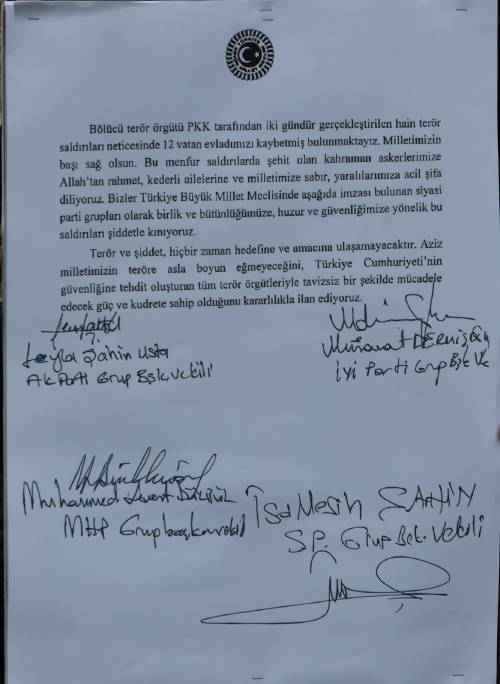 Bölücü terör örgütü PKK tarafından iki gündür gerçekleştirilen hain terör
saldırıları neticesinde 12 vatan evladımızı kaybetmiş bulunmaktayız. Milletimizin
başı sağ olsun. Bu menfur saldırılarda şehit olan kahraman askerlerimize
Allah'tan rahmet, kederli ailelerine ve milletimize sabır, yaralılarımıza acil şifa
diliyoruz. Bizler Türkiye Büyük Millet Meclisinde aşağıda imzası bulunan siyasi
parti grupları olarak birlik ve bütünlüğümüze, huzur ve güvenliğimize yönelik bu
saldırıları şiddetle kınıyoruz.
Terör ve şiddet, hiçbir zaman hedefine ve amacına ulaşamayacaktır. Aziz
milletimizin teröre asla boyun eğmeyeceğini, Türkiye Cumhuriyeti'nin
güvenliğine tehdit oluşturan tüm terör örgütleriyle tavizsiz bir şekilde mücadele
edecek güç ve kudrete sahip olduğunu kararlılıkla ilan ediyoruz.
Leyla Şahin Usta
Ak Parti Grup Bşk Vekili
İyi Parti Grup Bşk Ve
Muhammed Levent
MHP Grup başkanvekili
İsa Mesih ŞAHİN
SP. Grup Bşk. Vekili